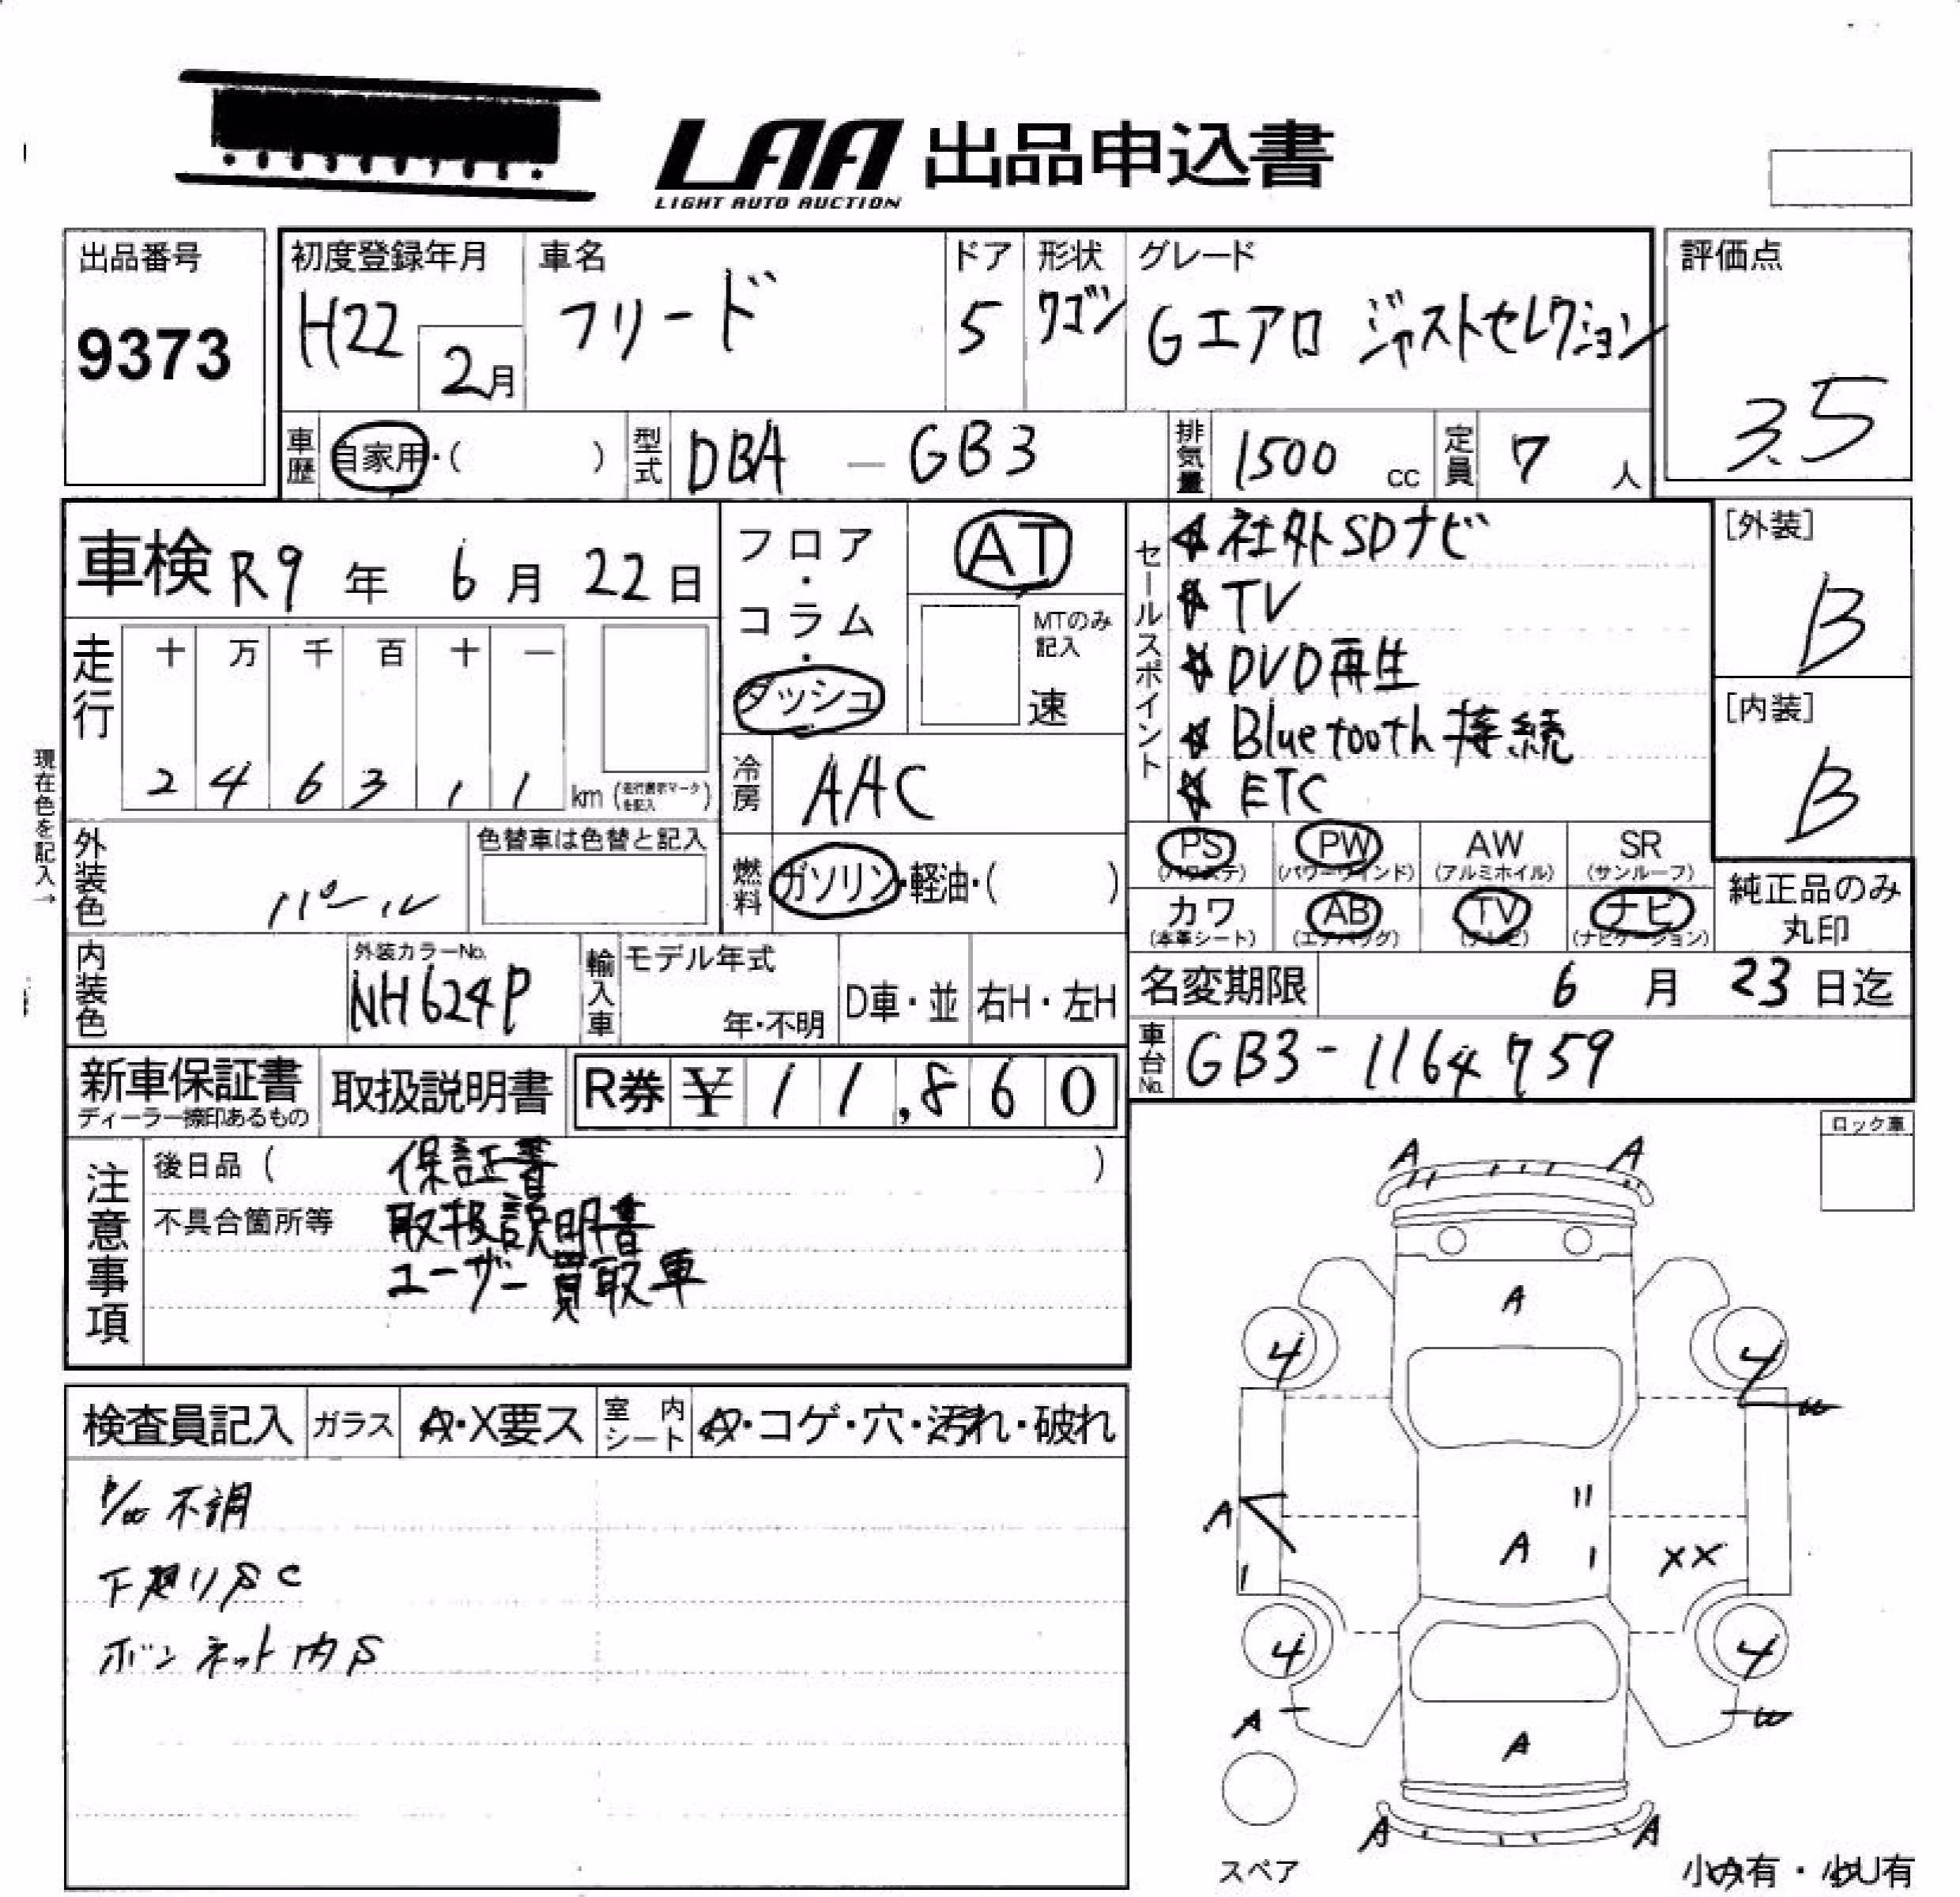 LAA 出品申込書
LIGHT AUTO AUCTION
出品番号
9373
初度登録年月
H22 2月
車名
フリード
ドア
5
形状
ワゴン
グレード
Gエアロ ジャストセレクション
評価点
3.5
車歴 自家用・( )
型式 DBA — GB3
排気量 1500 cc
定員 7 人
車検 R9 年 6 月 22 日
走行
十 万 千 百 十 一
2 4 6 3 1 1 km (走行表示マークを記入)
現在色を記入→
外装色 パール
色替車は色替と記入
内装色
外装カラーNo.
NH624P
輸入車
モデル年式
年・不明
D車・並
右H・左H
フロア・コラム・ダッシュ
AT
MTのみ記入
速
冷房 AAC
燃料 ガソリン・軽油・( )
セールスポイント
社外SDナビ
TV
DVD再生
Bluetooth接続
ETC
[外装]
B
[内装]
B
PS (パワステ)
PW (パワーウインド)
AW (アルミホイル)
SR (サンルーフ)
カワ (本革シート)
AB (エアバッグ)
TV (テレビ)
ナビ (ナビゲーション)
純正品のみ丸印
名変期限 6 月 23 日迄
車台No. GB3-1164759
新車保証書
ディーラー捺印あるもの
取扱説明書
R券 ¥ 11,860
注意事項
後日品 ( 保証書 )
不具合箇所等 取扱説明書
ユーザー買取車
検査員記入
ガラス A・X要ス
室内シート A・コゲ・穴・汚れ・破れ
不調
下廻りSC
ボンネット内S
ロック車
A A
A
4 4
W
A
A
XX
4 4
A
W
A
A A
スペア
小A有・小U有